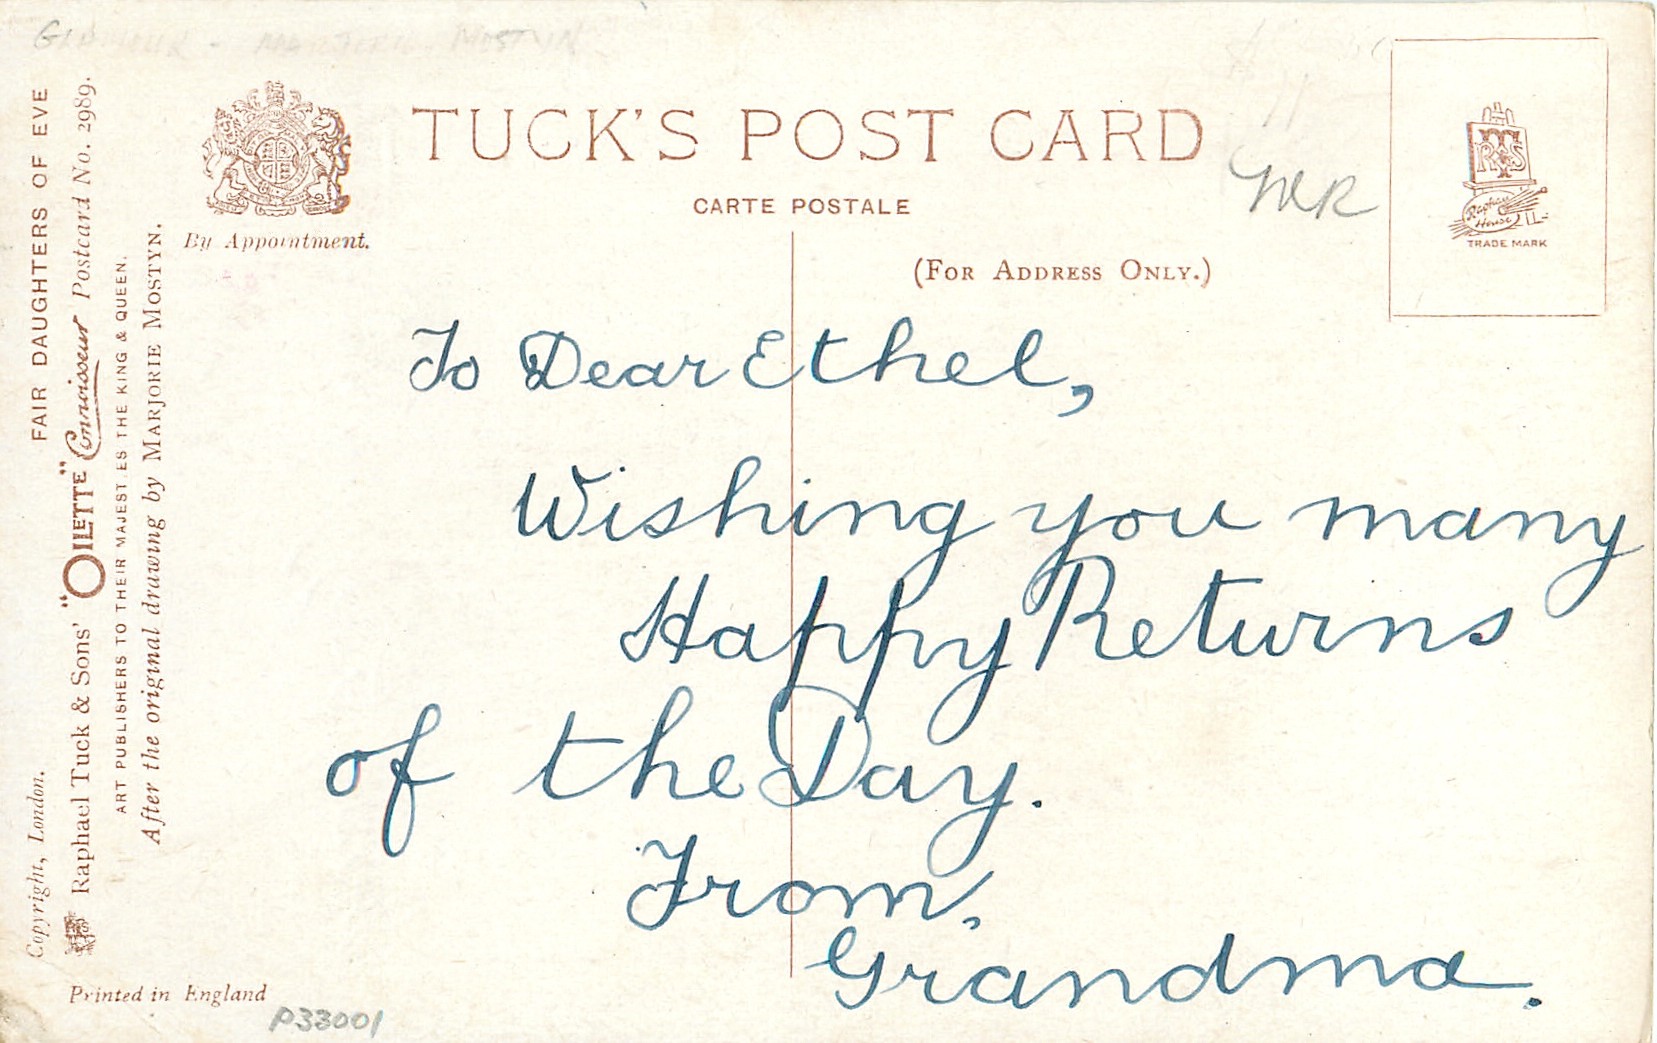 TUCK'S POST CARD
CARTE POSTALE
By Appointment.
(FOR ADDRESS ONLY.)
TRADE MARK
Raphael House
To Dear Ethel,
Wishing you many
Happy Returns
of the Day.
From,
Grandma.
FAIR DAUGHTERS OF EVE
Copyright, London.
Raphael Tuck & Sons' "OILETTE" Connoisseur Postcard No. 2989.
ART PUBLISHERS TO THEIR MAJESTIES THE KING & QUEEN.
After the original drawing by MARJORIE MOSTYN.
Printed in England
P33001